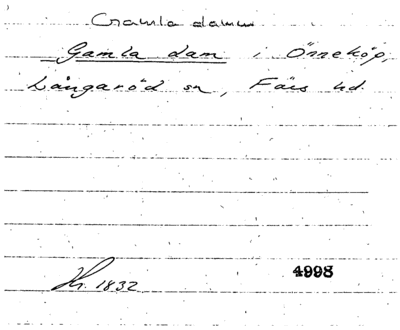 Gamla damm
Gamla dam i Önneköp,
Långaröd sn, Färs hd.
Hr. 1832
4998